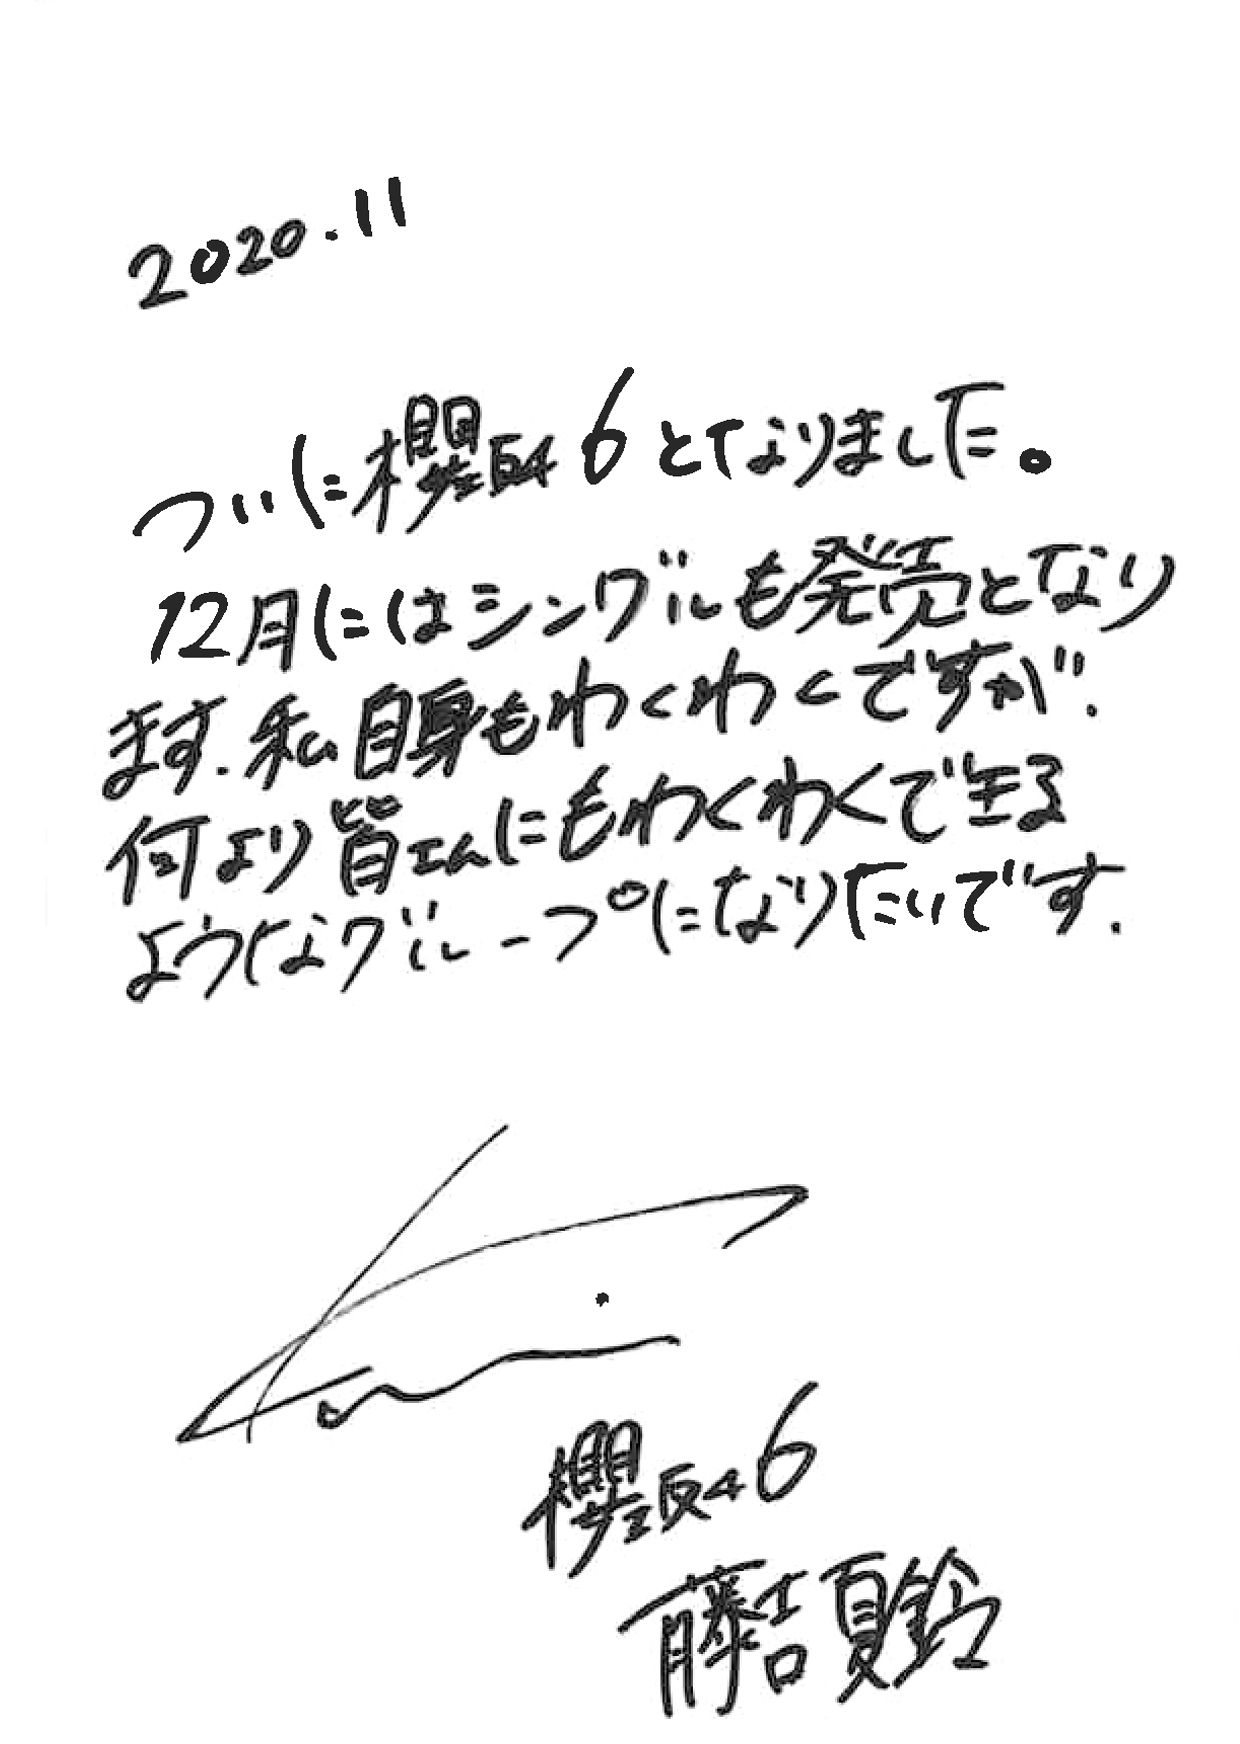 2020.11
ついに櫻坂46となりました。
12月にはシングルも発売となり
ます.私自身もわくわくですが.
何より皆さんにもわくわくできる
ようなグループになりたいです.
櫻坂46
藤吉夏鈴